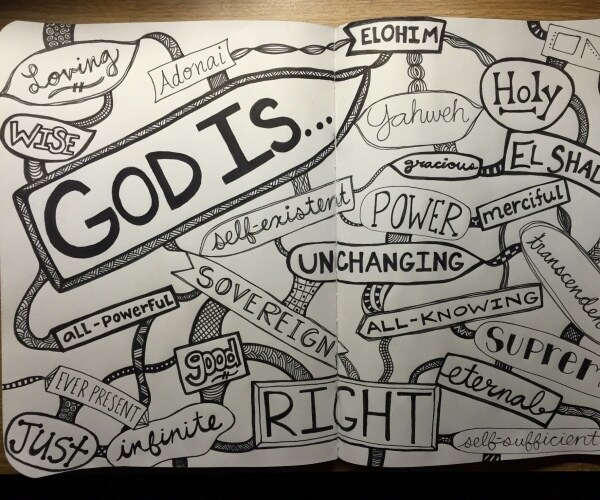 Loving
Adonai
ELOHIM
Holy
WISE
GOD IS...
Yahweh
gracious
EL SHAD
self-existent
POWER
merciful
UNCHANGING
transcenden
SOVEREIGN
all-powerful
ALL-KNOWING
SUPREM
good
EVER PRESENT
eternal
RIGHT
JUST
infinite
self-sufficient